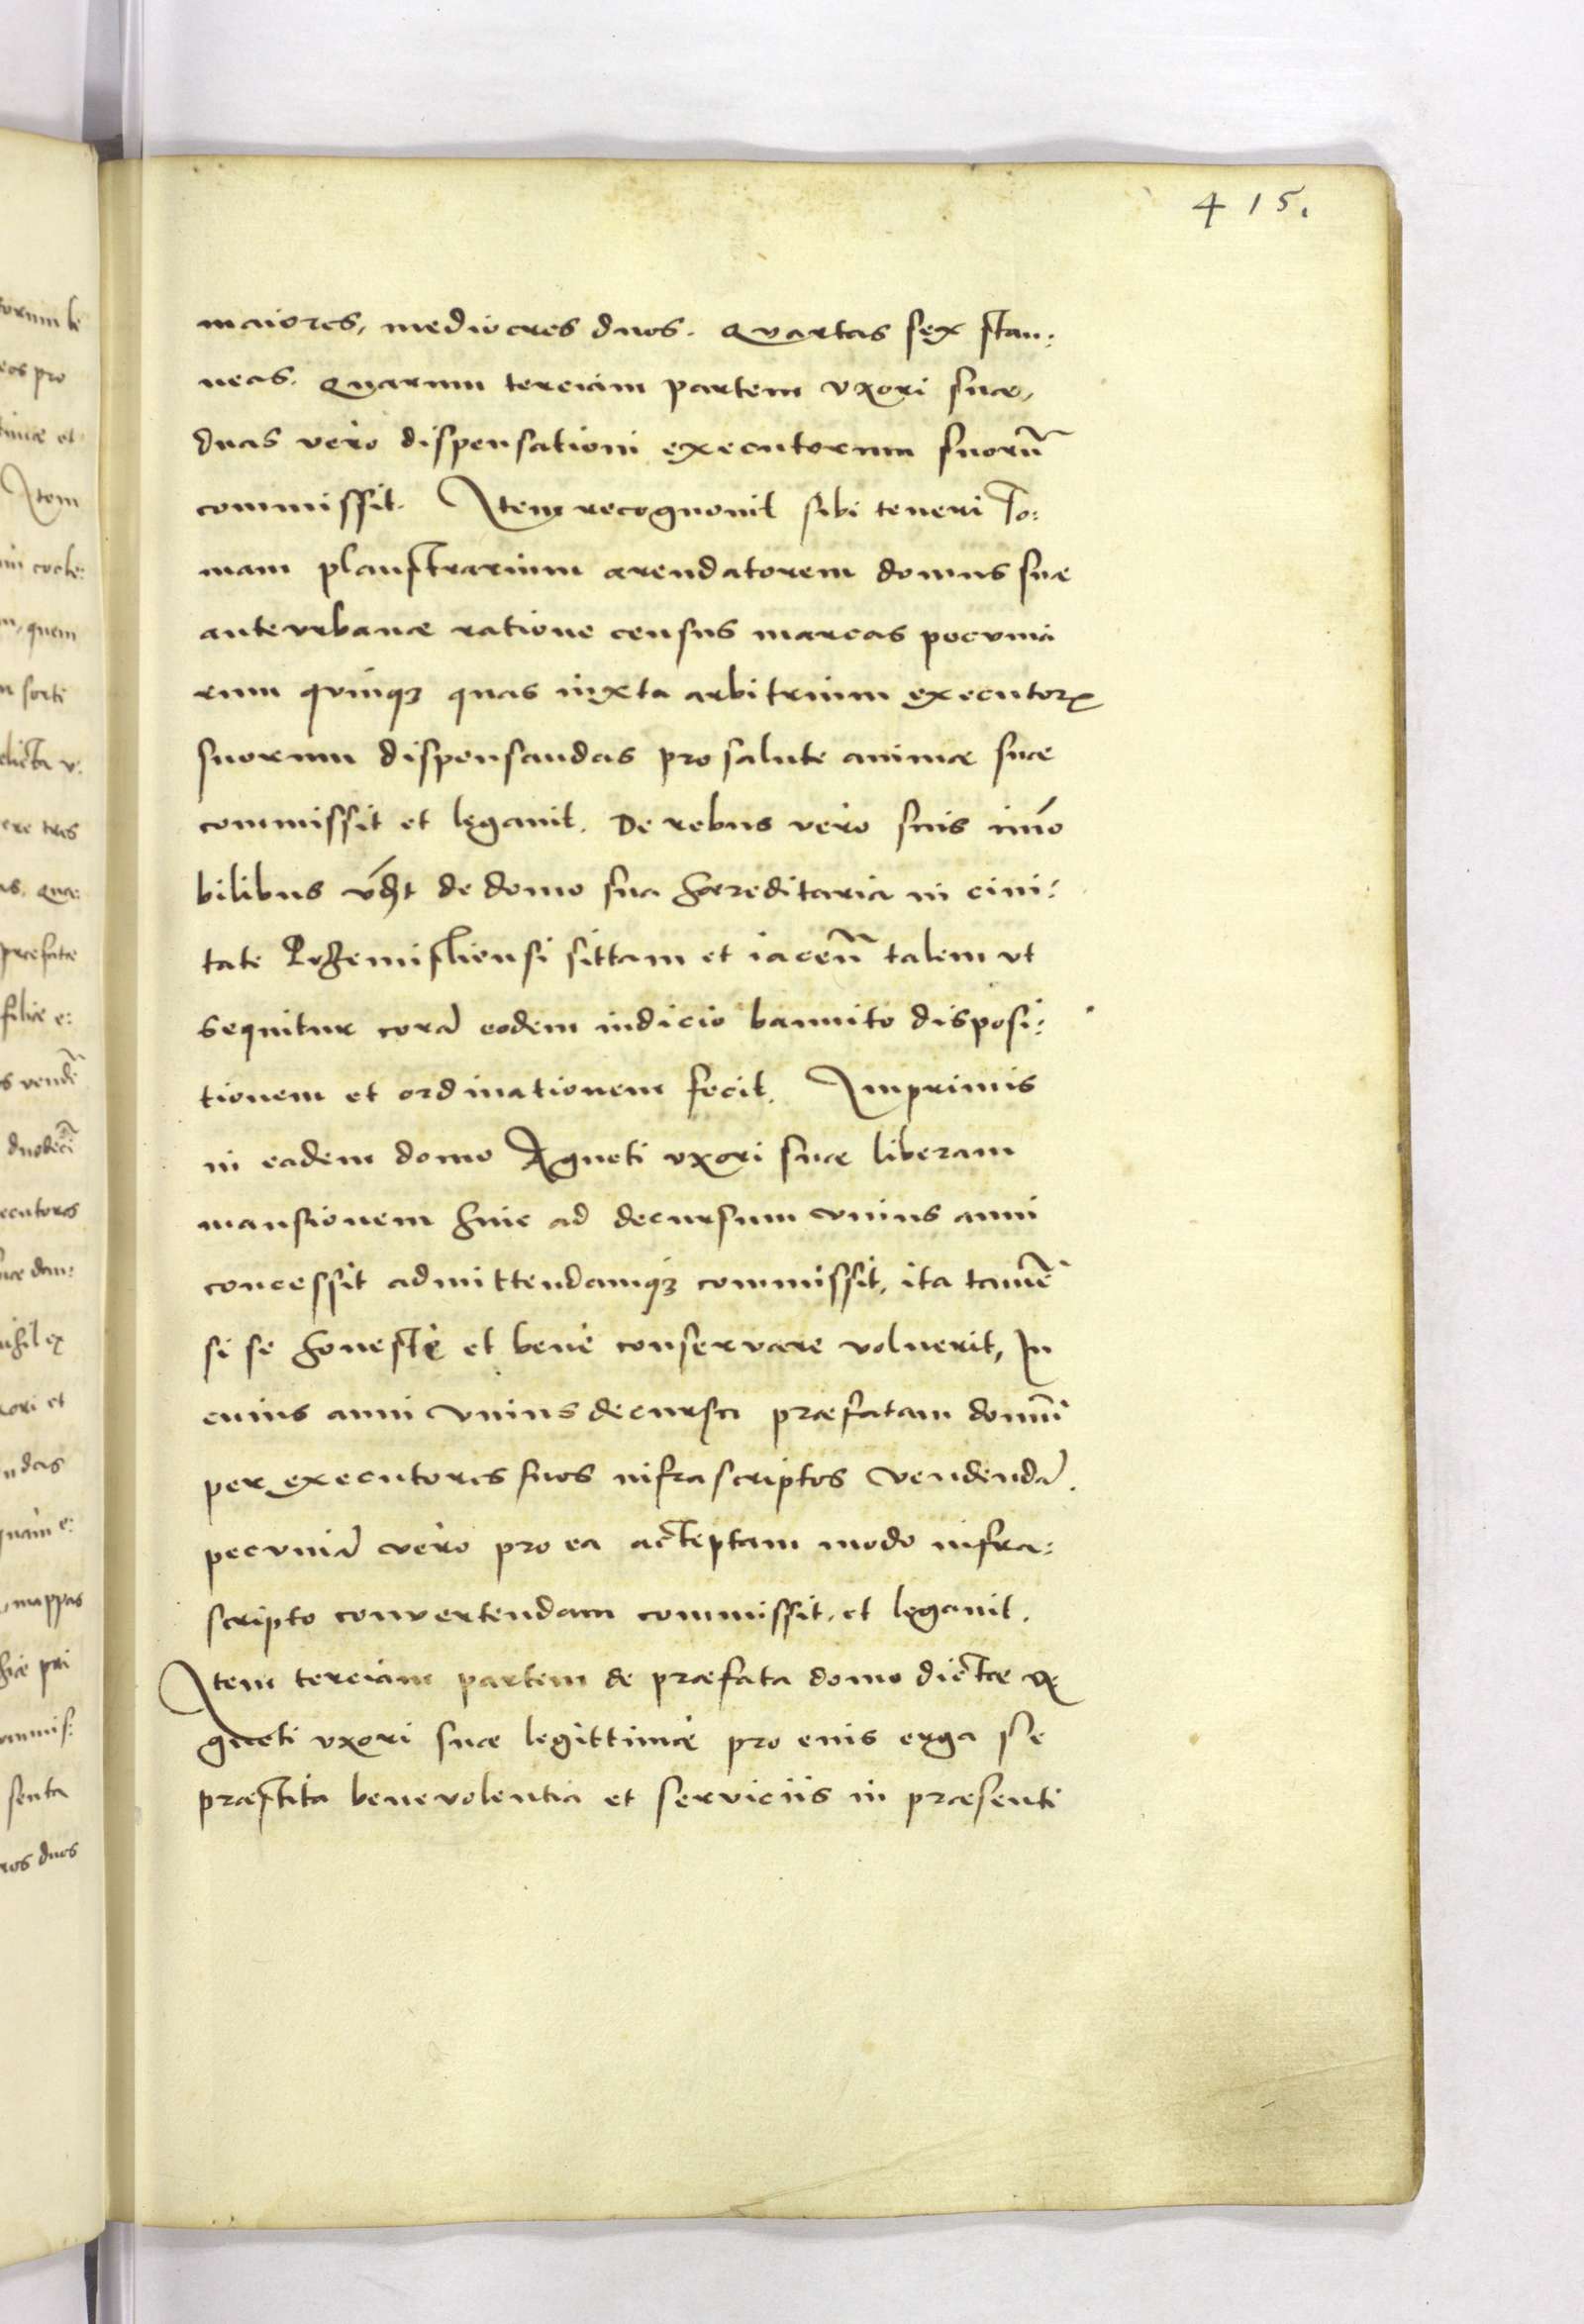 415.
maiores, mediocres duos. Quartas sex stan:
neas. Quarum terciam partem vxori suae,
duas vero dispensationi executorum suorũ
commissit. Item recognouit sibi teneri To:
mam plaustrarium arendatorem domus suae
antevrbanae ratione census marcas pecunia
rum quinqꝫ quas iuxta arbitrium executorꝝ
suorum dispensandas pro salute animae suae
commissit et legauit. De rebus vero suis im̃o
bilibus vdꝫt de domo sua haereditaria in ciui:
tate Przemisliensi sittam et iaceñ talem vt
sequitur corã eodem iudicio bannito disposi:
tionem et ordinationem fecit. Imprimis
in eadem domo Agneti vxori suae liberam
mansionem huic ad decursum vnius anni
concessit admittendamqꝫ commissit, ita tamẽ
si se honestè et benè conservare voluerit, In
cuius anni vnius decursu praefatam domũ
per executores suos infrascriptos vendendã.
pecuniã vero pro ea acceptam modo infra:
scripto convertendam commissit, et legauit.
Item terciam partem de praefata domo dictae A
gneti vxori suae legittimae pro eius erga se
praestita benevolentia et serviciis in praesenti